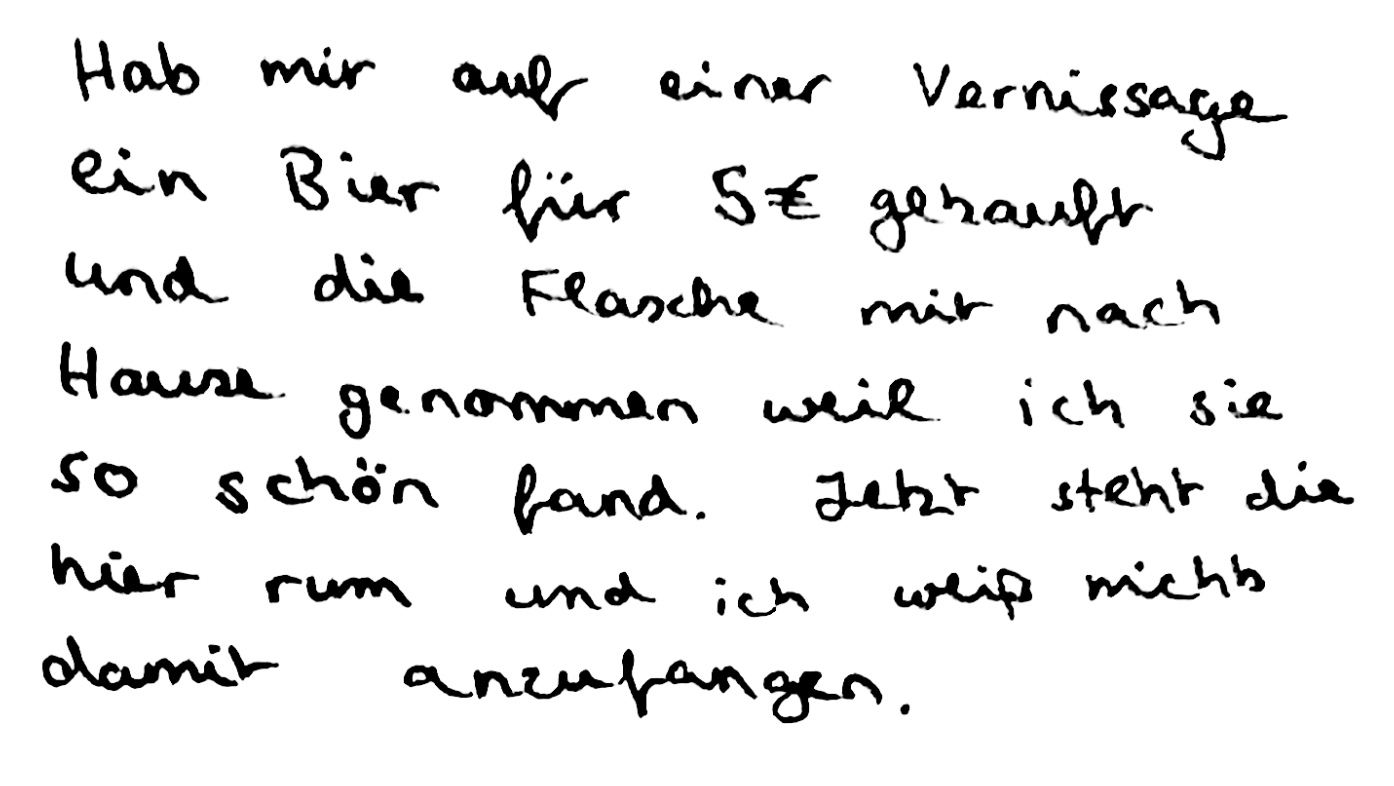 Hab mir auf einer Vernissage
ein Bier für 5€ gekauft
und die Flasche mit nach
Hause genommen weil ich sie
so schön fand. Jetzt steht die
hier rum und ich weiß nichts
damit anzufangen.